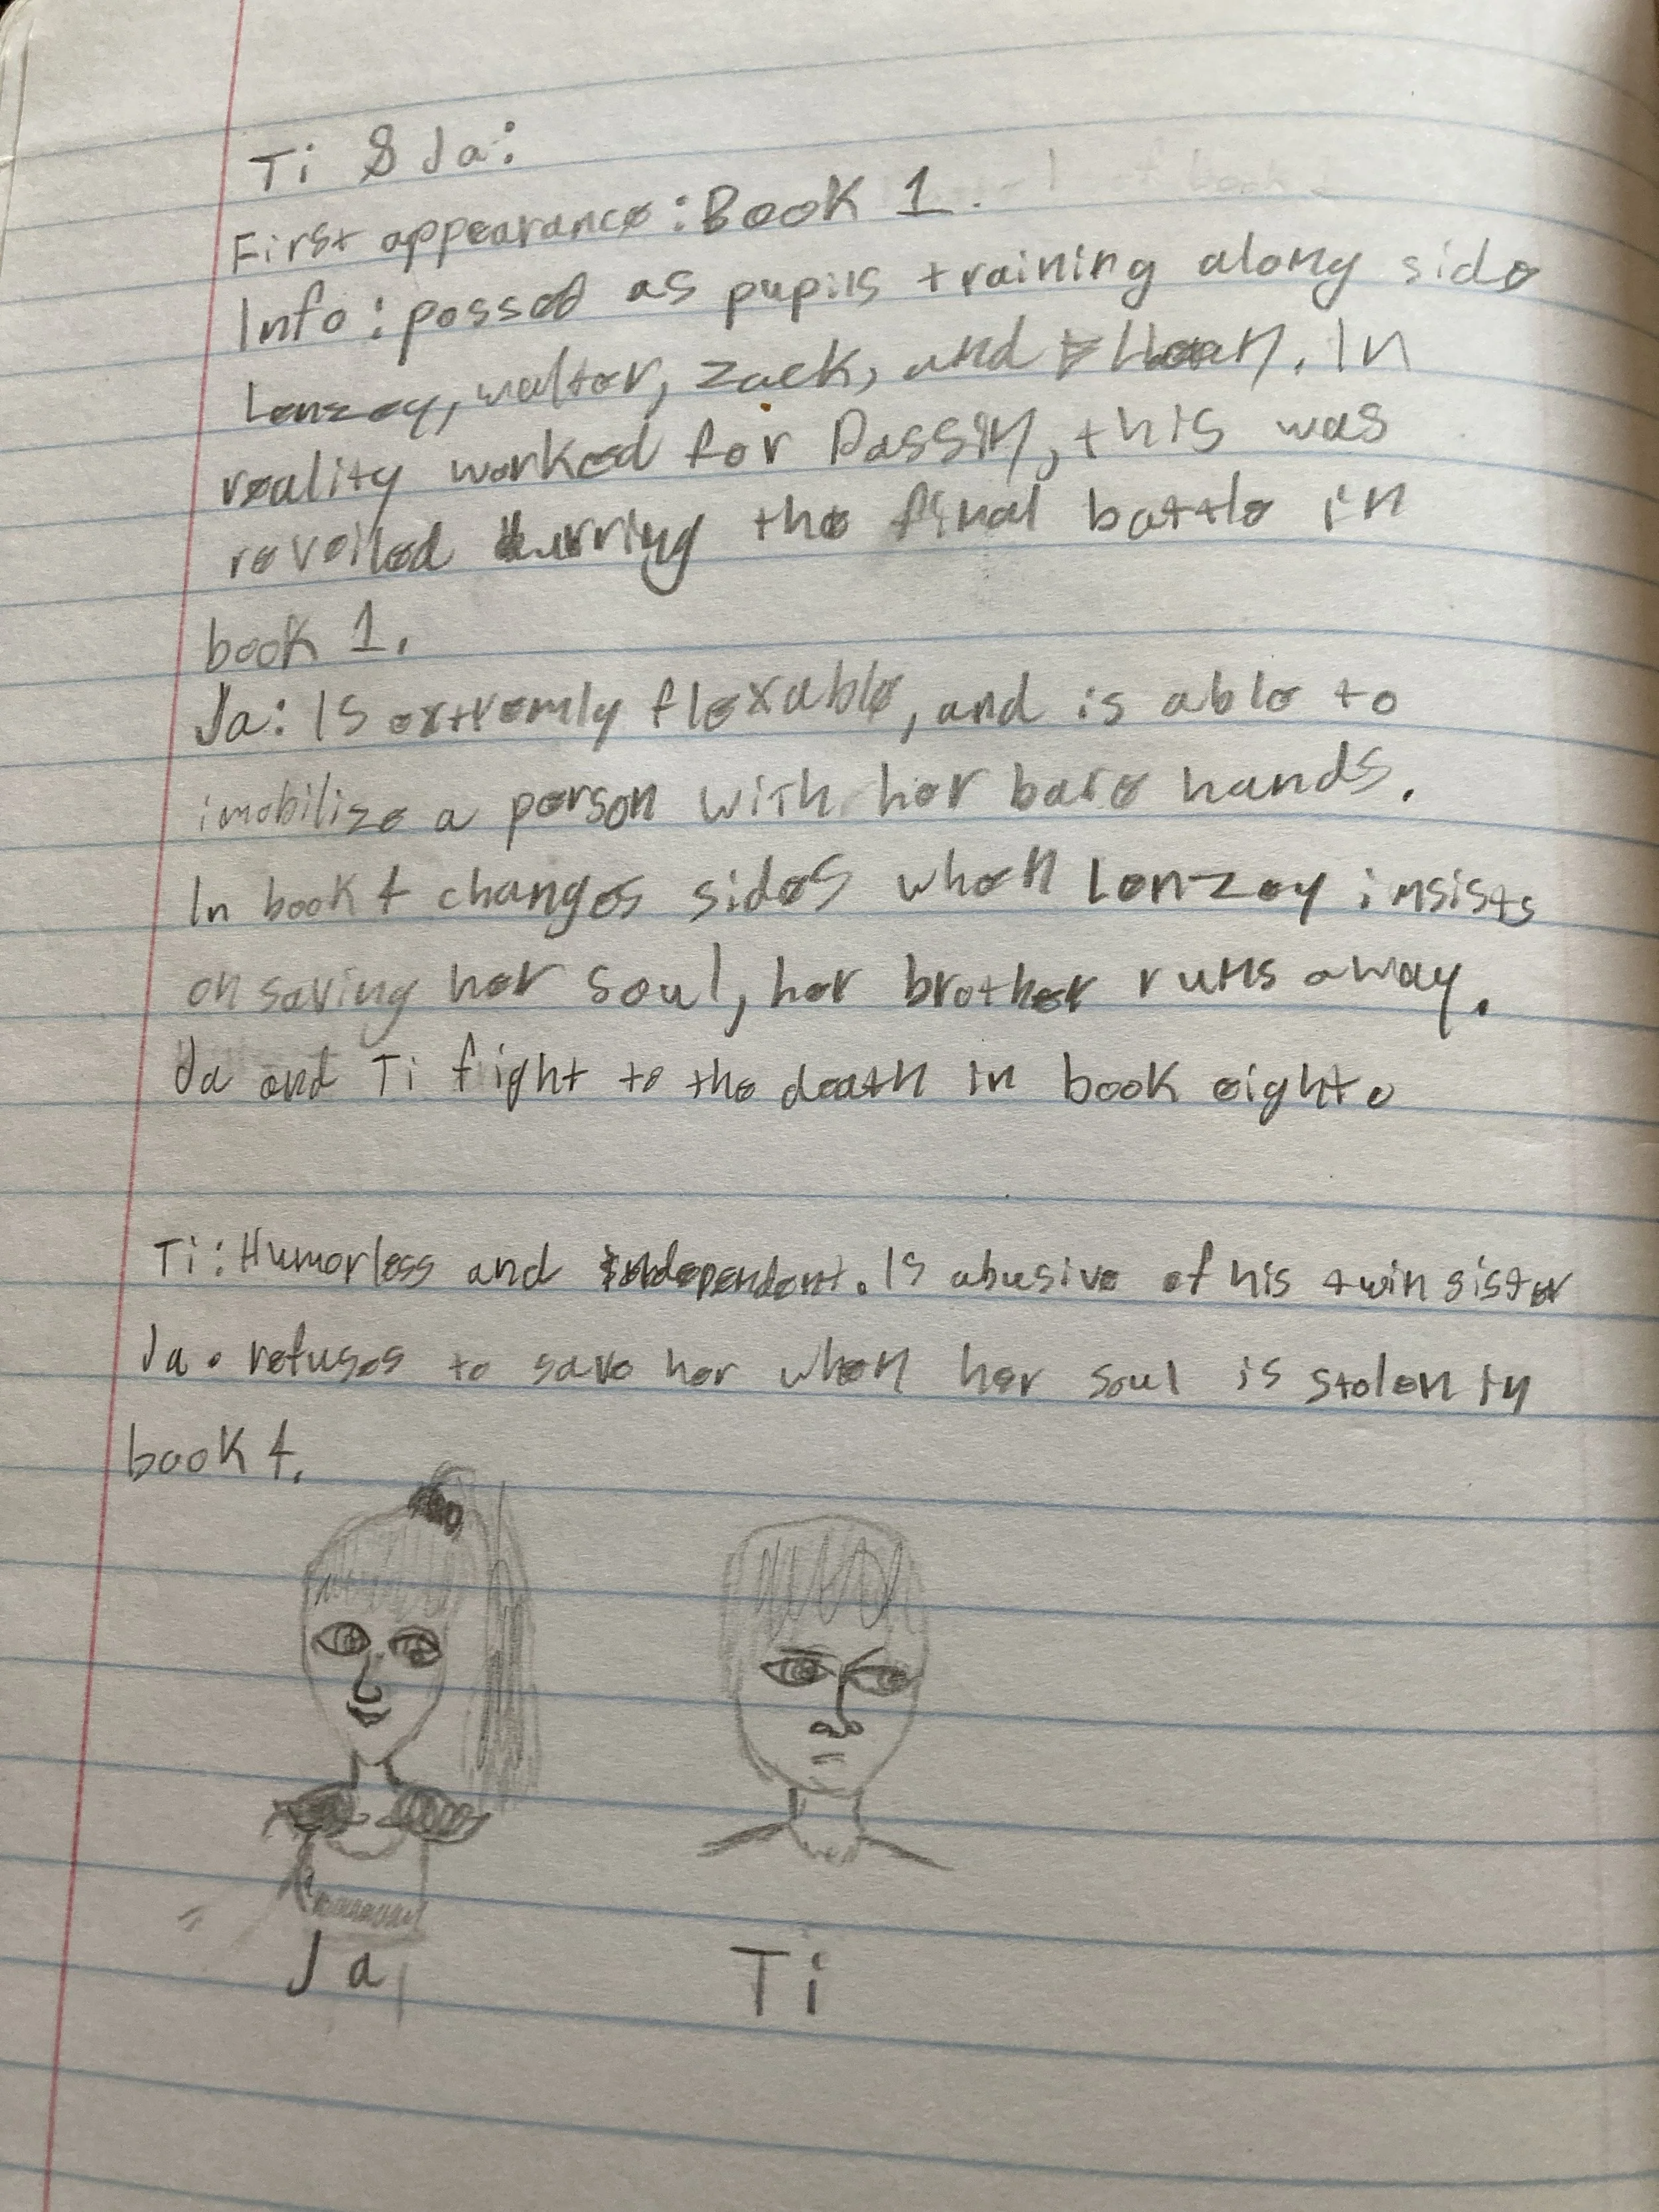 Ti & Ja:
First appearance: Book 1.
Info: possed as pupils training along side
Lenzey, walter, zack, and In
reality worked for Dassin, this was
reveiled durring the final battle in
book 1.
Ja: Is extremly flexable, and is able to
imobilize a person with her bare hands.
In book 4 changes sides when Lenzey insists
on saving her soul, her brother runs away.
Ja and Ti fight to the death in book eight.
Ti: Humorless and independent. Is abusive of his twin sister
Ja. refuses to save her when her soul is stolen in
book 4.
Ja
Ti